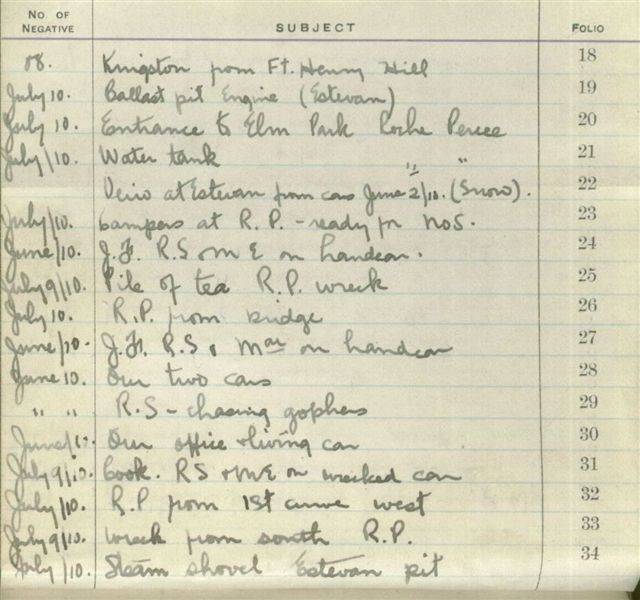 No. of Negative SUBJECT FOLIO
08. Kingston from Ft. Henry Hill 18
July 10. Ballast pit Engine (Estevan) 19
July 10. Entrance to Elm Park Roche Percee 20
July/10. Water tank " " 21
View at Estevan from cars June 2/10. (Snow). 22
July/10. Campers at R.P. - ready for No 5. 23
June/10. J.H. R.S & M E on handcar. 24
July 9/10. Pile of tea R.P. wreck 25
July 10. R.P. from bridge 26
June/10. J.H. R.S. & on handcar 27
June 10. Our two cars 28
" " R.S - chasing gophers 29
June/10. Our office & living car 30
July 9/10. Cook. RS & ME on wrecked car 31
July/10. R.P from 1st curve west 32
July 9/10. Wreck from south R.P. 33
July/10. Steam shovel Estevan pit 34